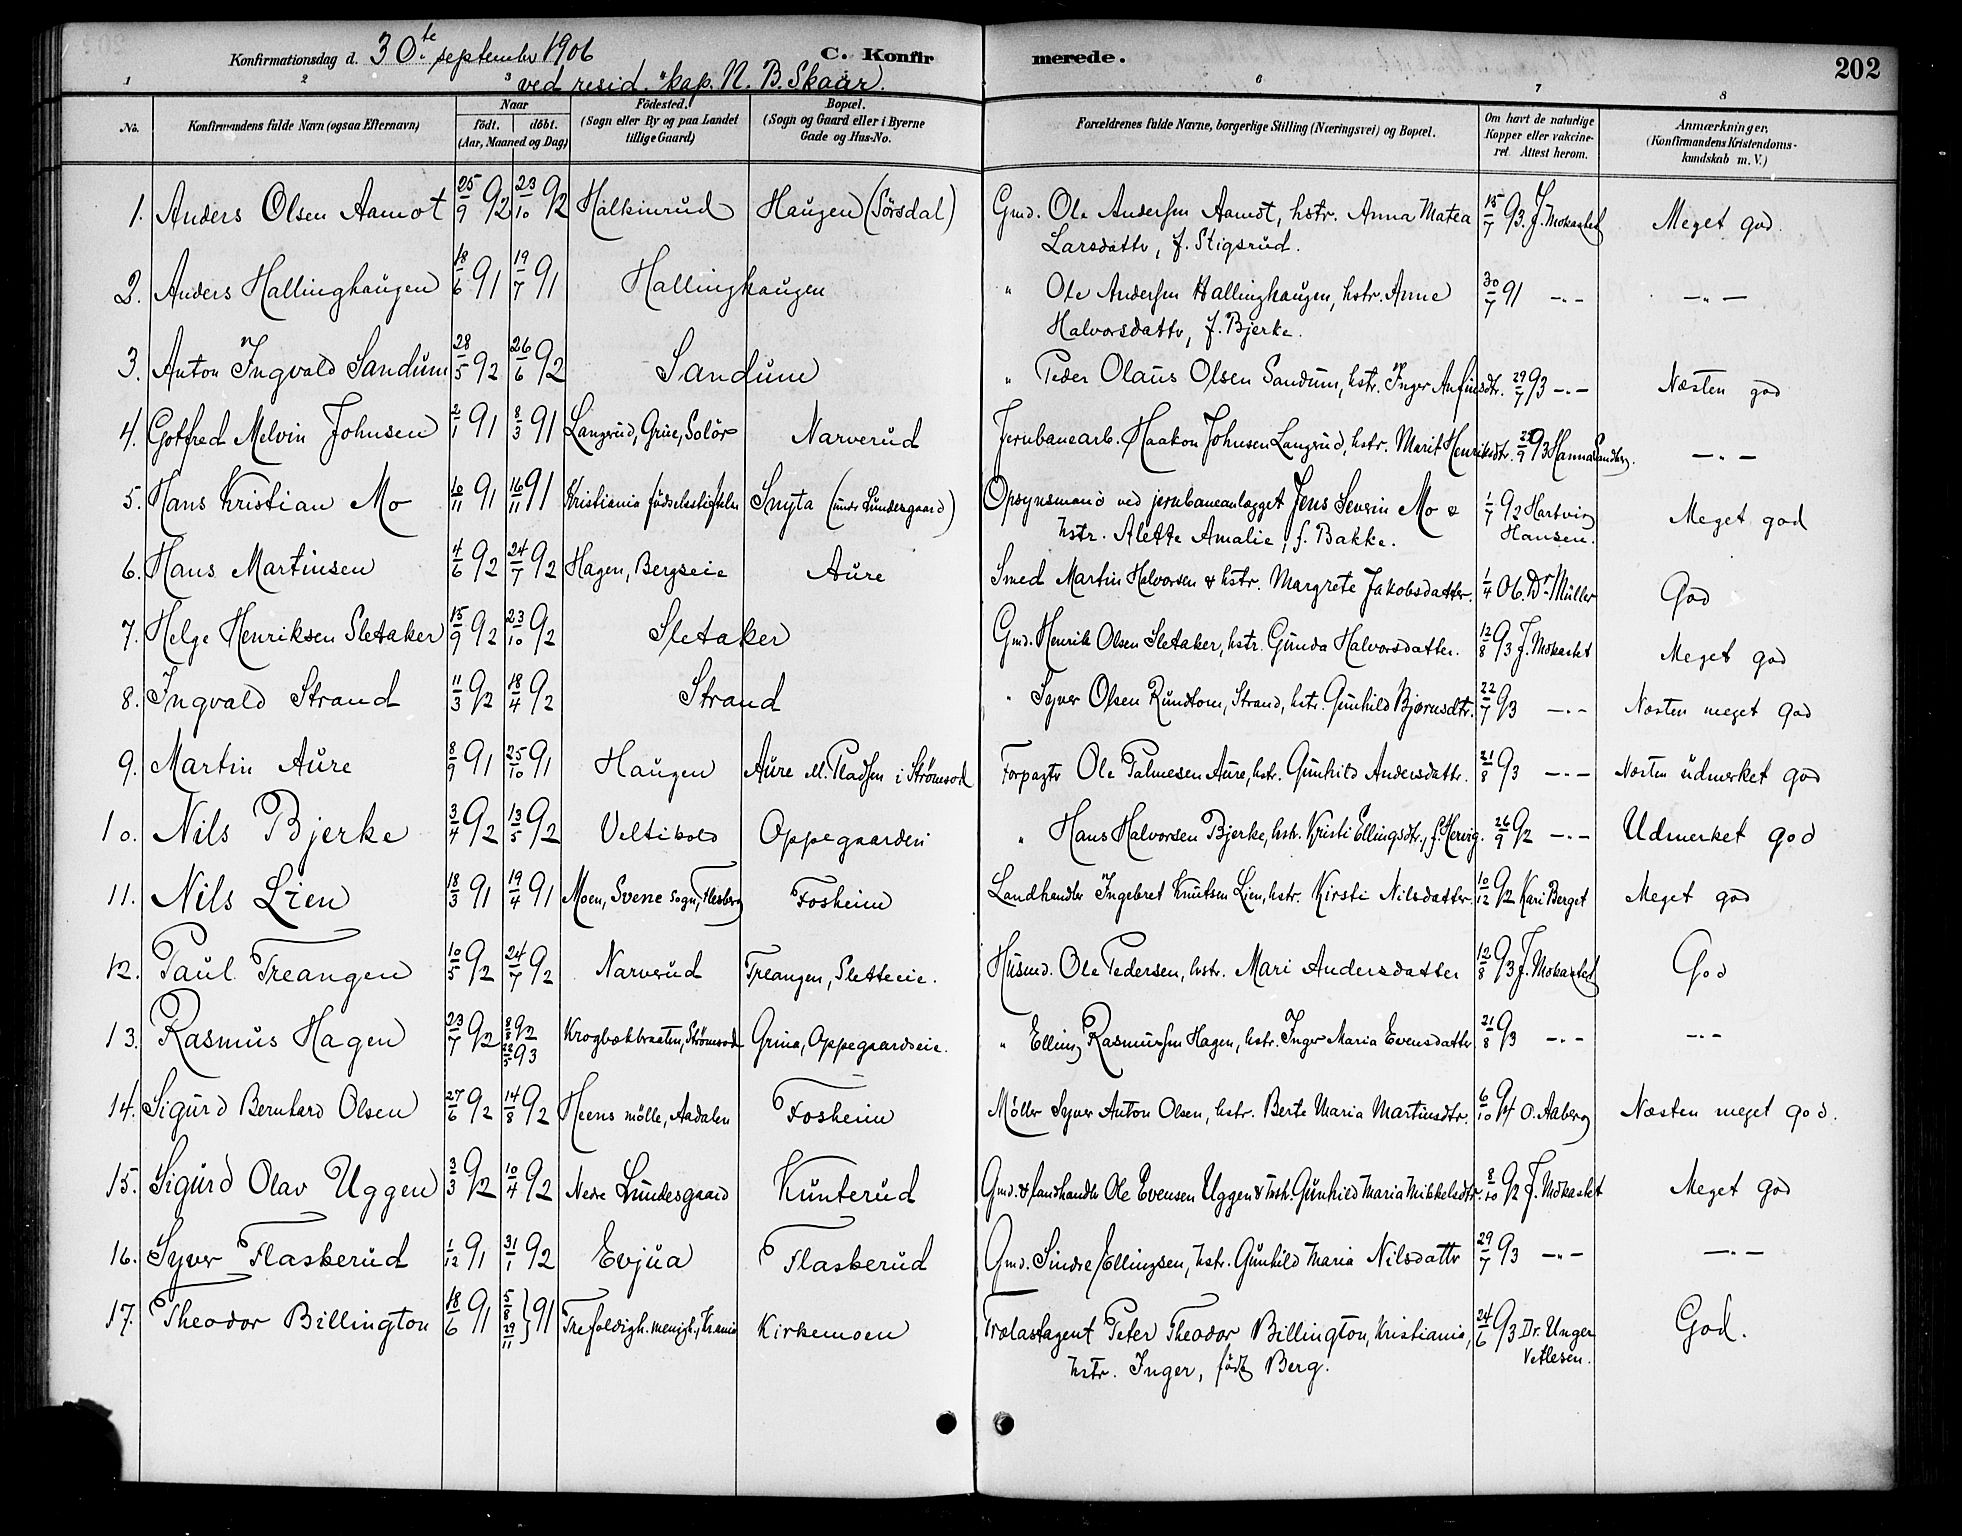 Konfirmationsdag d. 30.te september 1906 C. Konfirmerede. 202
ved resid. kap. N. B. Skaar.
1 2 3 6 7 8
No. Konfirmandens fulde Navn (ogsaa Efternavn) Naar födt. döbt. (Aar, Maaned og Dag) Födested. (Sogn eller By og paa Landet tillige Gaard) Bopæl. (Sogn og Gaard eller i Byerne Gade og Hus-No. Forældrenes fulde Navne, borgerlige Stilling (Næringsvei) og Bopæl. Om havt de naturlige Kopper eller vakcineret. Attest herom. Anmærkninger. (Konfirmandens Kristendomskundskab m. V.)
1. Anders Olsen Aamot 25/9 92 23/10 92 Halkinrud Haugen (Sørsdal) Gmd. Ole Andersen Aamot, hstr. Anna Matea 15/7 93. J. Mokastet Meget god.
Larsdattr, f. Stigsrud.
2. Anders Hallinghaugen 18/6 91 19/7 91 Hallinghaugen " Ole Andersen Hallinghaugen, hstr. Anne 30/7 91 -"- -"-
Halvorsdattr, f. Bjerke.
3. Anton Ingvald Sandum 28/5 92 26/6 92 Sandum " Peder Olaus Olsen Sandum, hstr. Inger Anfinsdtr. 29/7 93 -"- Næsten god
4. Gotfred Melvin Johnsen 2/1 91 8/3 91 Langrud, Grue, Solör Narverud Jernbanearb. Haakon Johnsen Langrud, hstr. Marit Henriksdtr. 29/9 93 Hanna Sandberg. -"-
5. Hans Kristian Mo 10/11 91 16/11 91 Kristiania födselsstiftelse Snyta (undr Lundesgaard) Opsynsmand ved jernbaneanlægget Jens Severin Mo & 1/7 92 Hartvig Meget god
hstr. Alette Amalie, f. Bakke. Hansen.
6. Hans Martinsen 4/6 92 24/7 92 Hagen, Bergseie Aure Smed Martin Halvorsen & hstr. Margrete Jakobsdatter. 1/4 06. Dr Müller God
7. Helge Henriksen Sletaker 15/9 92 23/10 92 Sletaker Gmd. Henrik Olsen Sletaker, hstr. Gunda Halvorsdatter. 12/8 93 J. Mokastet Meget god
8. Ingvald Strand 11/3 92 18/4 92 Strand " Syver Olsen Rundtom, Strand, hstr. Gunhild Bjørnsdtr. 22/7 93 -"- Næsten meget god
9. Martin Aure 8/9 91 25/10 91 Haugen Aure M. Pladsen i Strømsod Forpagtr Ole Palmesen Aure, hstr. Gunhild Andersdattr. 21/8 93 -"- Næsten udmerket god
10. Nils Bjerke 3/4 92 13/5 92 Veltibold Oppegaarden " Hans Halvorsen Bjerke, hstr. Kristi Ellingsdtr., f. Hervig. 26/9 92 -"- Udmerket god
11. Nils Lien 18/3 91 19/4 91 Moen, Svene sogn, Flesberg Fosheim Landhandler Ingebret Knutsen Lien, hstr. Kirsti Nilsdatter. 10/12 92 Kari Berget Meget god
12. Paul Treangen 10/5 92 24/7 92 Narverud Treangen, Sletteeie. Husmd. Ole Pedersen, hstr. Mari Andersdatter 12/8 93 J. Mokastet God
13. Rasmus Hagen 23/7 92 8/8 92 22/5 93 Krogbækbraaten, Strömsod Grina, Oppegaardseie. " Elling Rasmussen Hagen, hstr. Inger Maria Evensdattr 21/8 93 -"- -"-
14. Sigurd Bernhard Olsen 27/6 92 14/8 92 Heens mölle, Aadalen Fosheim Møller Syver Anton Olsen, hstr. Berte Maria Martinsdtr. 6/10 94 O. Aaberg Næsten meget god.
15. Sigurd Olav Uggen 3/3 92 10/4 92 Nedre Lundesgaard Kunterud Gmd. & landhandlr Ole Evensen Uggen & hstr. Gunhild Maria Mikkelsdtr. 8/10 92 J. Mokastet Meget god
16. Syver Flaskerud 1/12 91 31/1 92 Evjua Flaskerud Gmd. Sindre Ellingsen, hstr. Gunhild Maria Nilsdattr 29/7 93 -"- -"-
17. Theodor Billington 18/6 91 5/8 29/11 } 91 Trefoldigh. menigh., Krania Kirkemoen Trælastagent Peter Theodor Billington, Kristiania, 24/6 93 Dr. Unger God.
hstr. Inger, født Berg. Vetlesen.